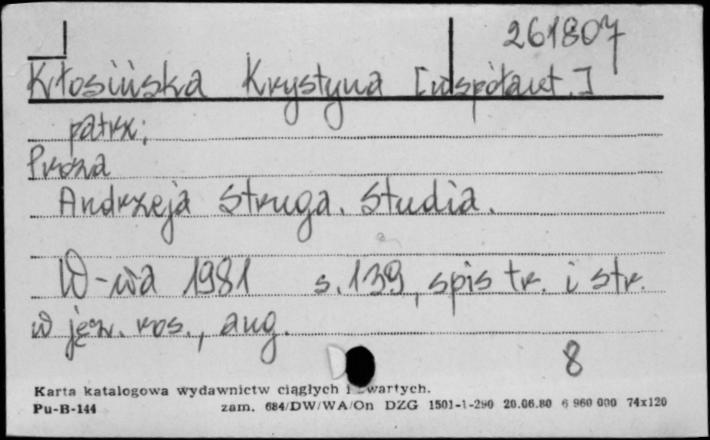 261807
Kłosińska Krystyna [współaut.]
patrz:
Proza
Andrzeja Struga. Studia.
W-wa 1981 s. 139, spis tr. i str.
w jęz. ros., ang.
8
Karta katalogowa wydawnictw ciągłych i zwartych.
Pu-B-144 zam. 684/DW/WA/On DZG 1501-1-290 20.06.80 6 960 000 74x120